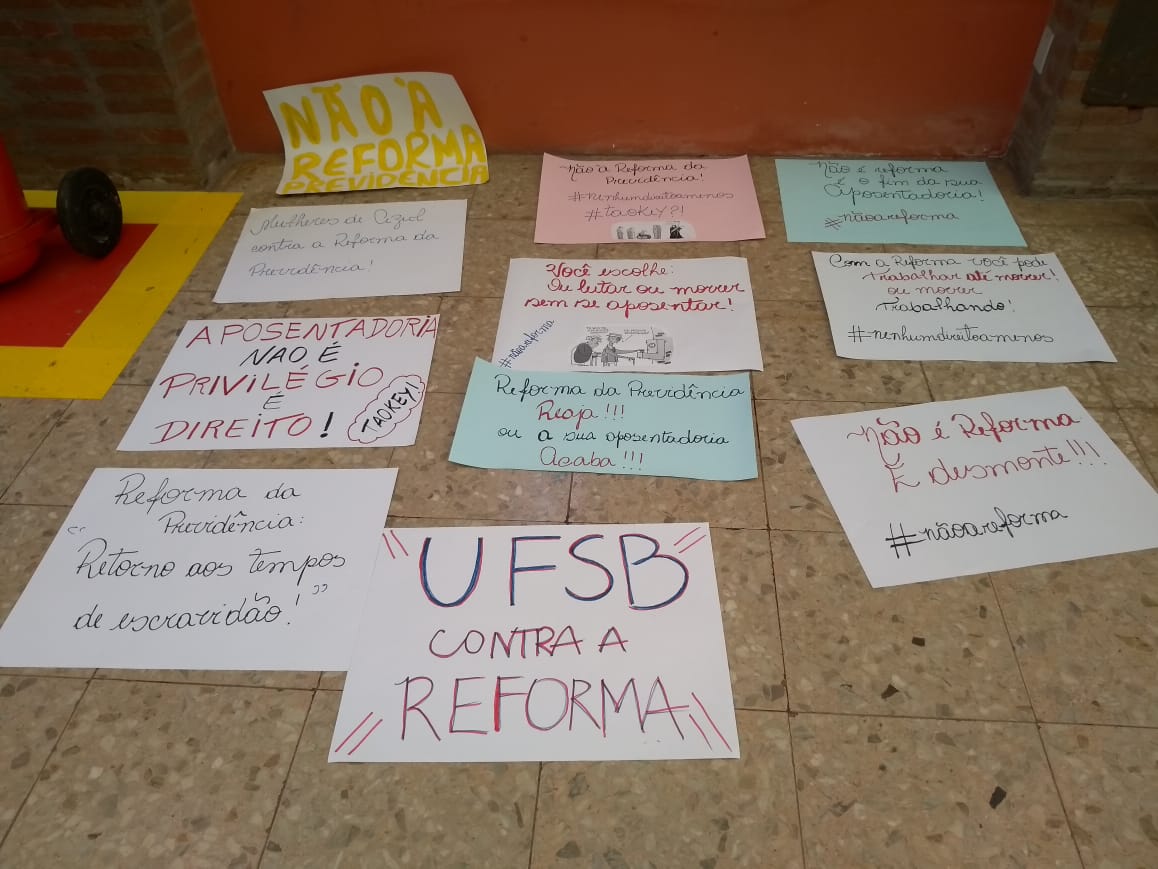 NÃO À
REFORMA
PREVIDÊNCIA
Mulheres de Cizul
contra a Reforma da
Previdência!
APOSENTADORIA
NAO É
PRIVILÉGIO
É
DIREITO!
TAOKEY!
Reforma da
Previdência:
"Retorno aos tempos
de escravidão!"
Não à Reforma da
Previdência!
#nenhumdireitoamenos
#taokey?!
Você escolhe:
Ou lutar ou morrer
sem se aposentar!
#nãoareforma
Reforma da Previdência
Reaja!!!
ou a sua aposentadoria
Acaba!!!
"UFSB"
CONTRA A
REFORMA
Não é reforma
é o fim da sua
Aposentadoria!
#nãoareforma
Com a Reforma você pode
Trabalhar até morrer!
ou morrer
Trabalhando!
#nenhumdireitoamenos
Não é Reforma
É desmonte!!!
#nãoareforma